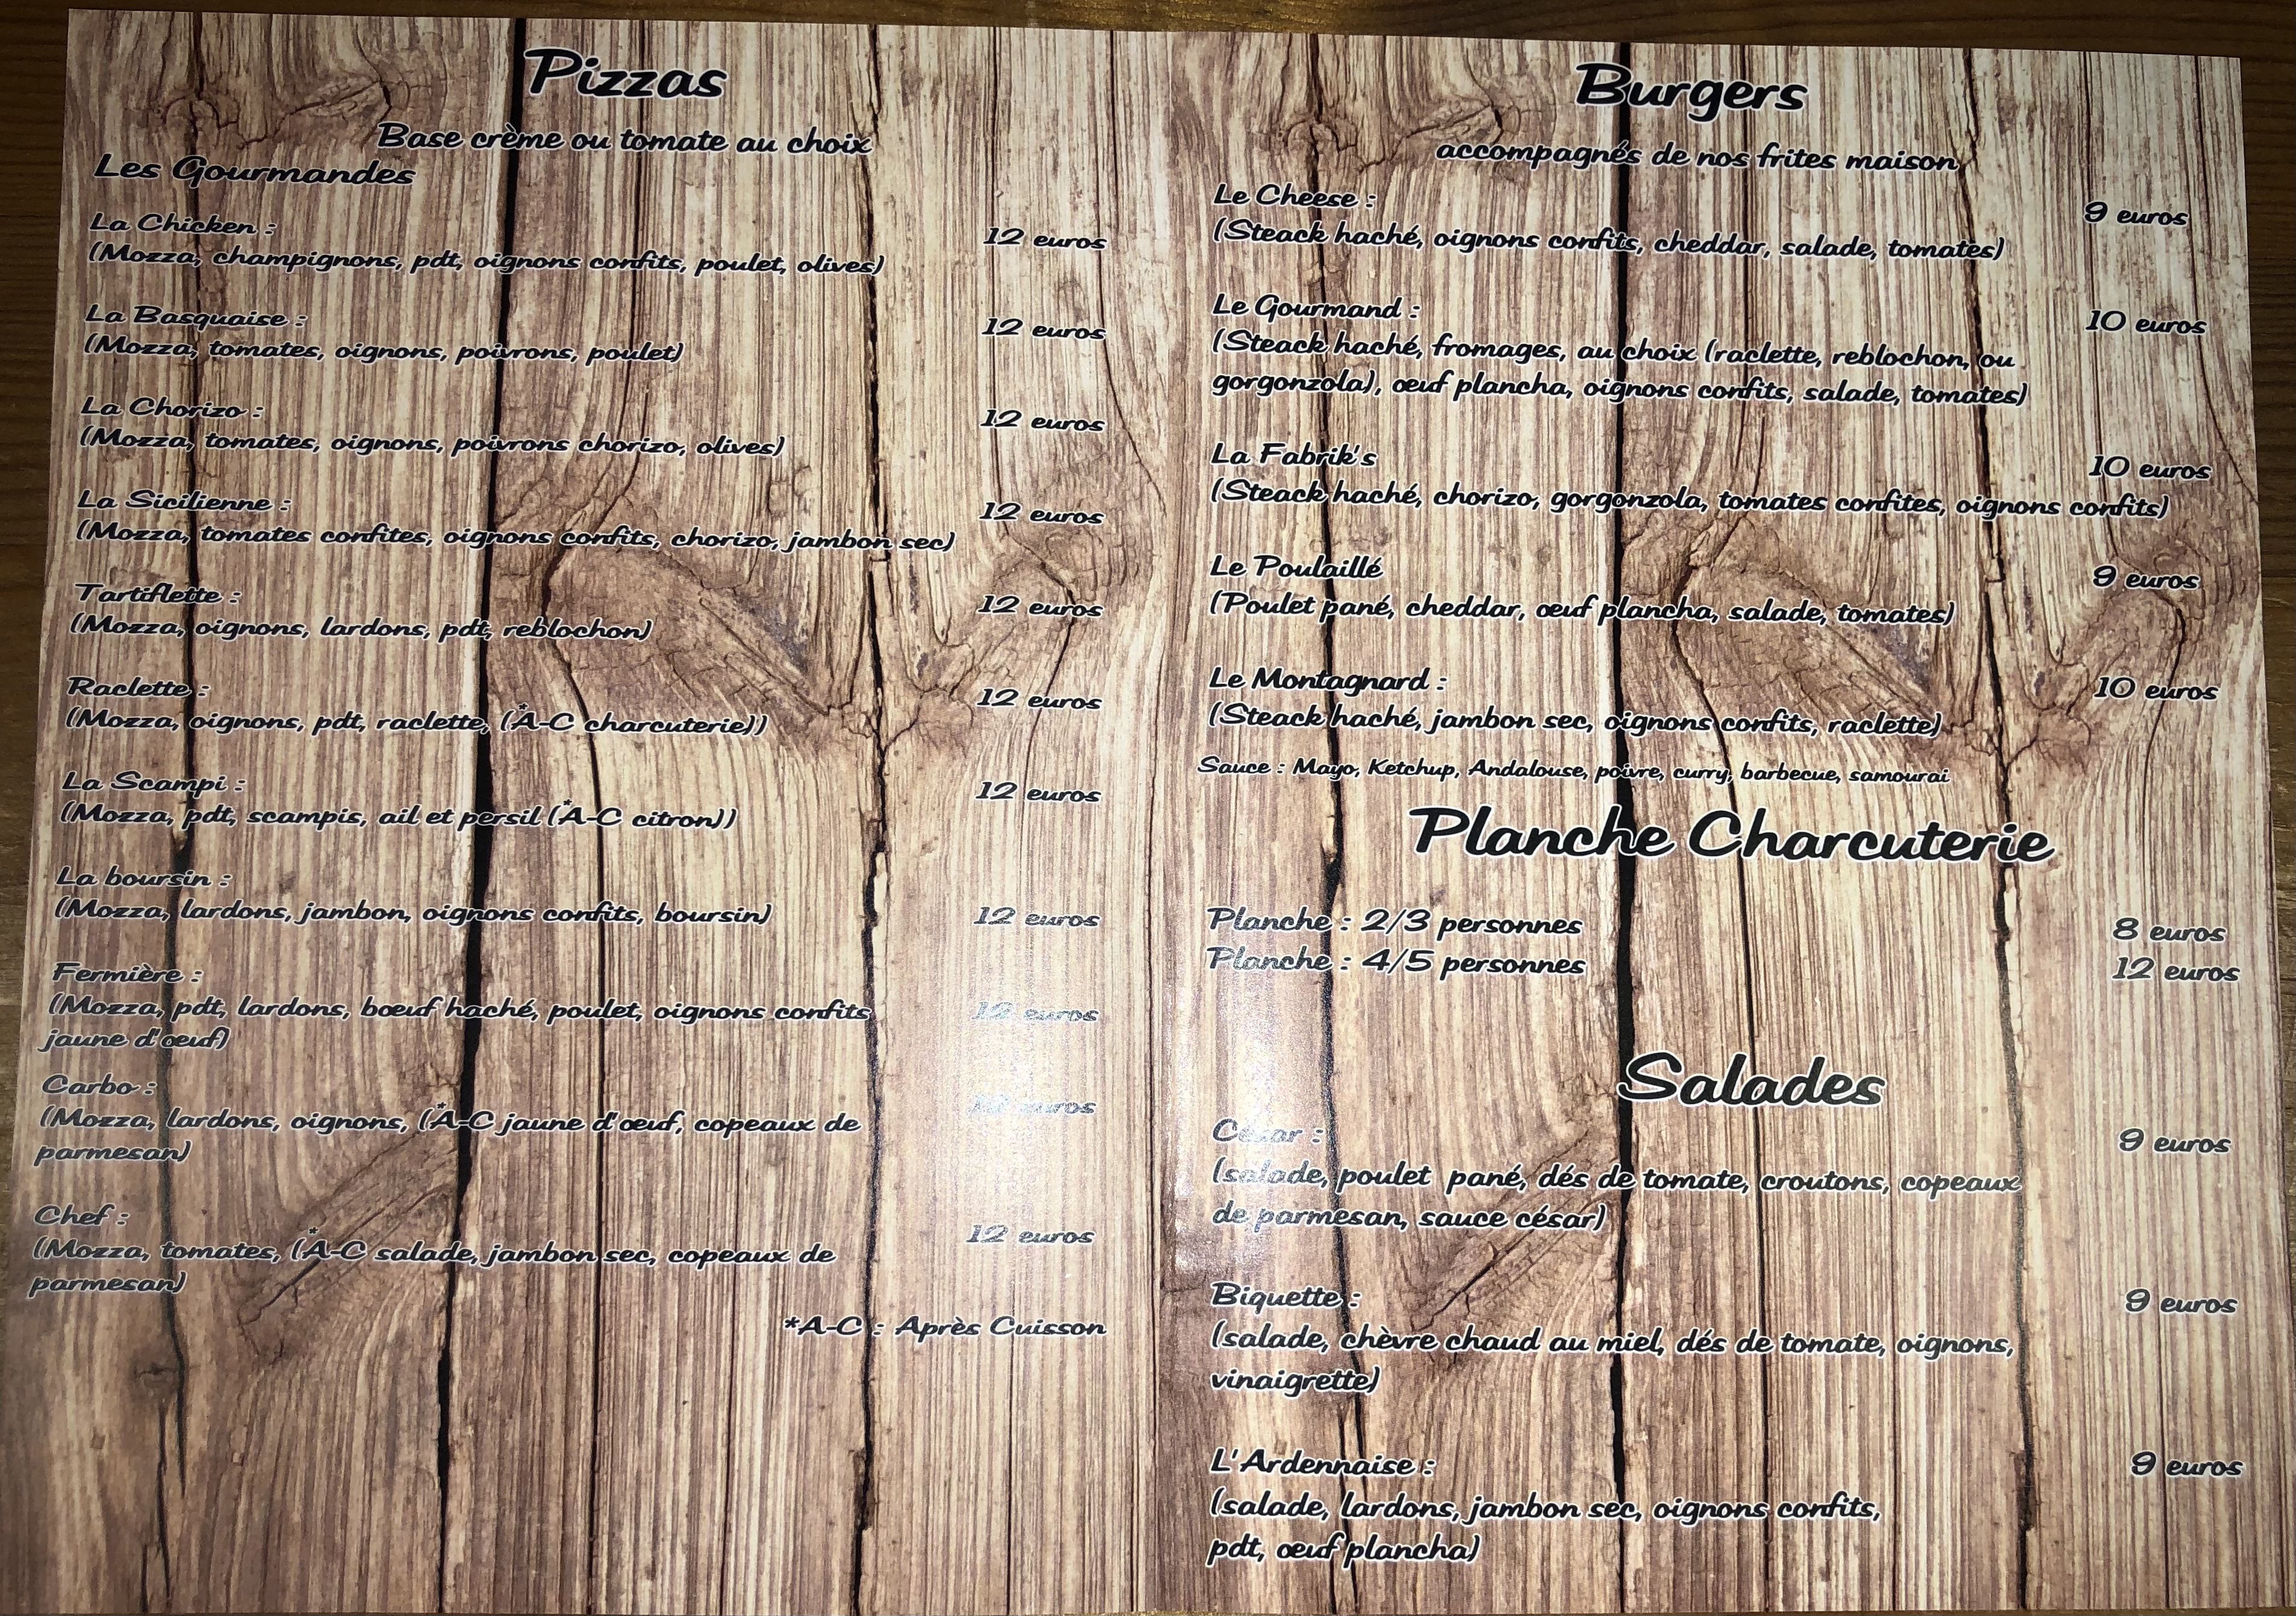 Pizzas
Base crème ou tomate au choix
Les Gourmandes
La Chicken :
12 euros
(Mozza, champignons, pdt, oignons confits, poulet, olives)
La Basquaise :
12 euros
(Mozza, tomates, oignons, poivrons, poulet)
La Chorizo :
12 euros
(Mozza, tomates, oignons, poivrons chorizo, olives)
La Sicilienne :
12 euros
(Mozza, tomates confites, oignons confits, chorizo, jambon sec)
Tartiflette :
12 euros
(Mozza, oignons, lardons, pdt, reblochon)
Raclette :
12 euros
(Mozza, oignons, pdt, raclette, (*A-C charcuterie))
La Scampi :
12 euros
(Mozza, pdt, scampis, ail et persil (*A-C citron))
La boursin :
(Mozza, lardons, jambon, oignons confits, boursin)
12 euros
Fermière :
(Mozza, pdt, lardons, bœuf haché, poulet, oignons confits
12 euros
jaune d'œuf)
Carbo :
euros
(Mozza, lardons, oignons, (*A-C jaune d'œuf, copeaux de
parmesan)
Chef :
12 euros
(Mozza, tomates, (*A-C salade, jambon sec, copeaux de
parmesan)
*A-C : Après Cuisson
Burgers
accompagnés de nos frites maison
Le Cheese :
9 euros
(Steack haché, oignons confits, cheddar, salade, tomates)
Le Gourmand :
10 euros
(Steack haché, fromages, au choix (raclette, reblochon, ou
gorgonzola), œuf plancha, oignons confits, salade, tomates)
La Fabrik's
10 euros
(Steack haché, chorizo, gorgonzola, tomates confites, oignons confits)
Le Poulaillé
9 euros
(Poulet pané, cheddar, œuf plancha, salade, tomates)
Le Montagnard :
10 euros
(Steack haché, jambon sec, oignons confits, raclette)
Sauce : Mayo, Ketchup, Andalouse, poivre, curry, barbecue, samourai
Planche Charcuterie
Planche : 2/3 personnes
8 euros
Planche : 4/5 personnes
12 euros
Salades
César :
9 euros
(salade, poulet pané, dés de tomate, croutons, copeaux
de parmesan, sauce césar)
Biquette :
9 euros
(salade, chèvre chaud au miel, dés de tomate, oignons,
vinaigrette)
L'Ardennaise :
9 euros
(salade, lardons, jambon sec, oignons confits,
pdt, œuf plancha)